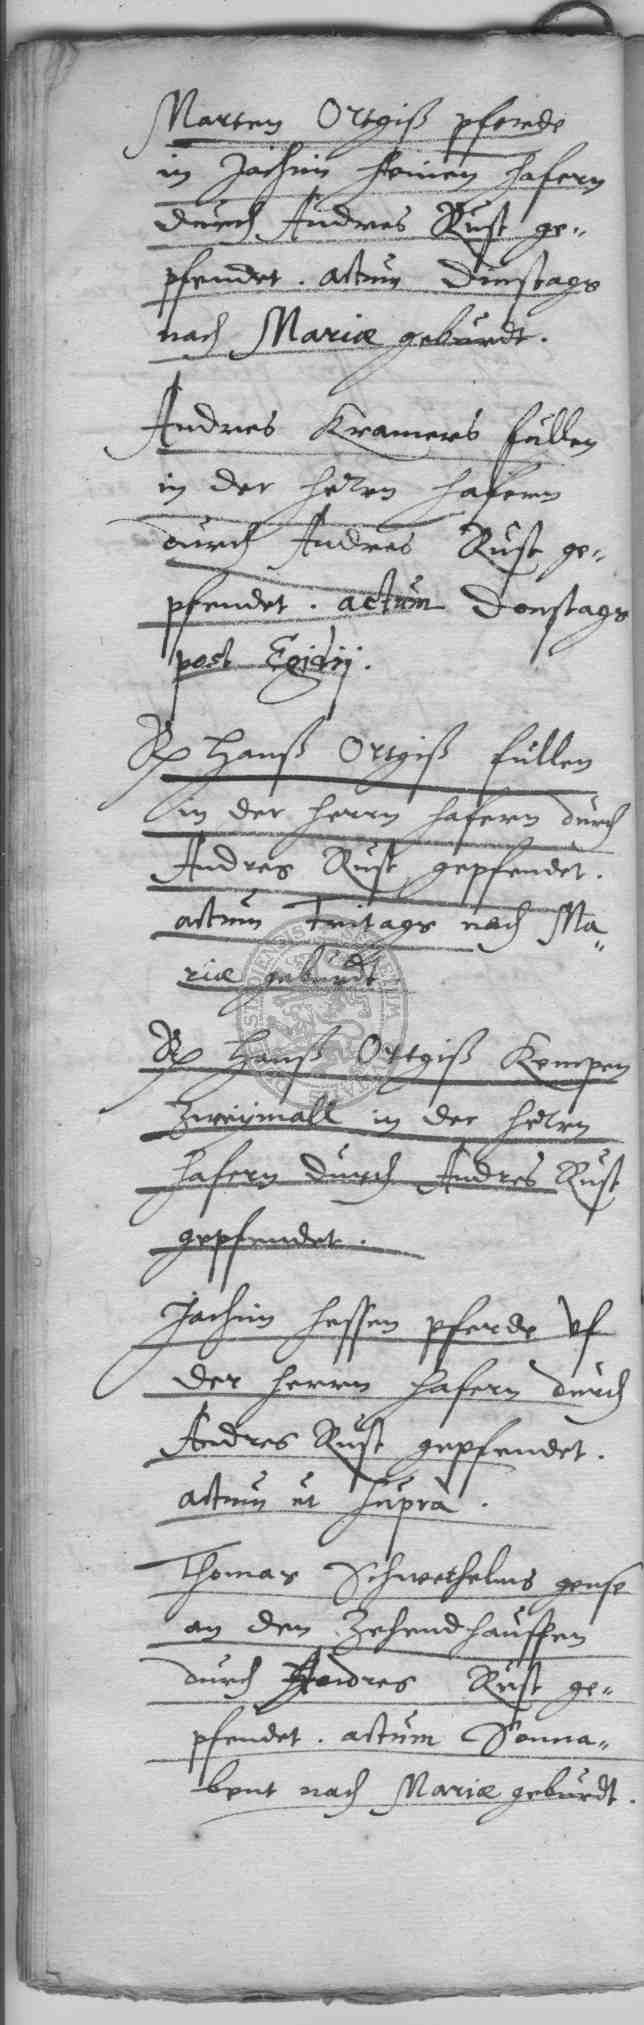 Marten Ortgiß pferde
in Jachim Heinen hafern
durch Andres Rust ge-
pfendet. actum Dinstags
nach Mariæ geburdt.
Andres Kramers füllen
in der hern hafern
durch Andres Rust ge-
pfendet. actum Donstags
post Egidij.
Hanß Ortgiß füllen
in der herrn hafern durch
Andres Rust gepfendet.
actum Fritags nach Ma-
riæ geburdt.
Hanß Ortgiß Kempen
Zweymall in der hern
hafern durch Andres Rust
gepfendet.
Jachim Hessen pferde vf
der herrn hafern durch
Andres Rust gepfendet.
actum ut supra.
Thomas Schwethelms gense
an den Zehendhauffen
durch Andres Rust ge-
pfendet. actum Sonna-
bent nach Mariæ geburdt.